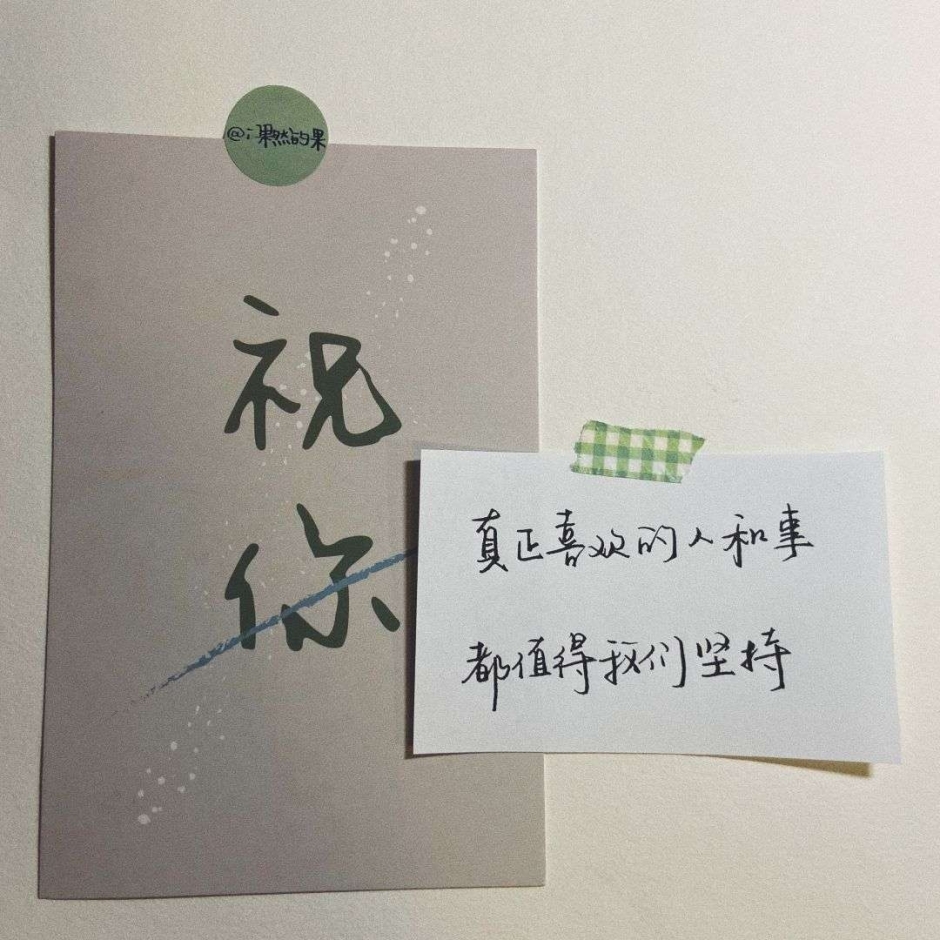 @i果然的果
祝
你
真正喜欢的人和事
都值得我们坚持